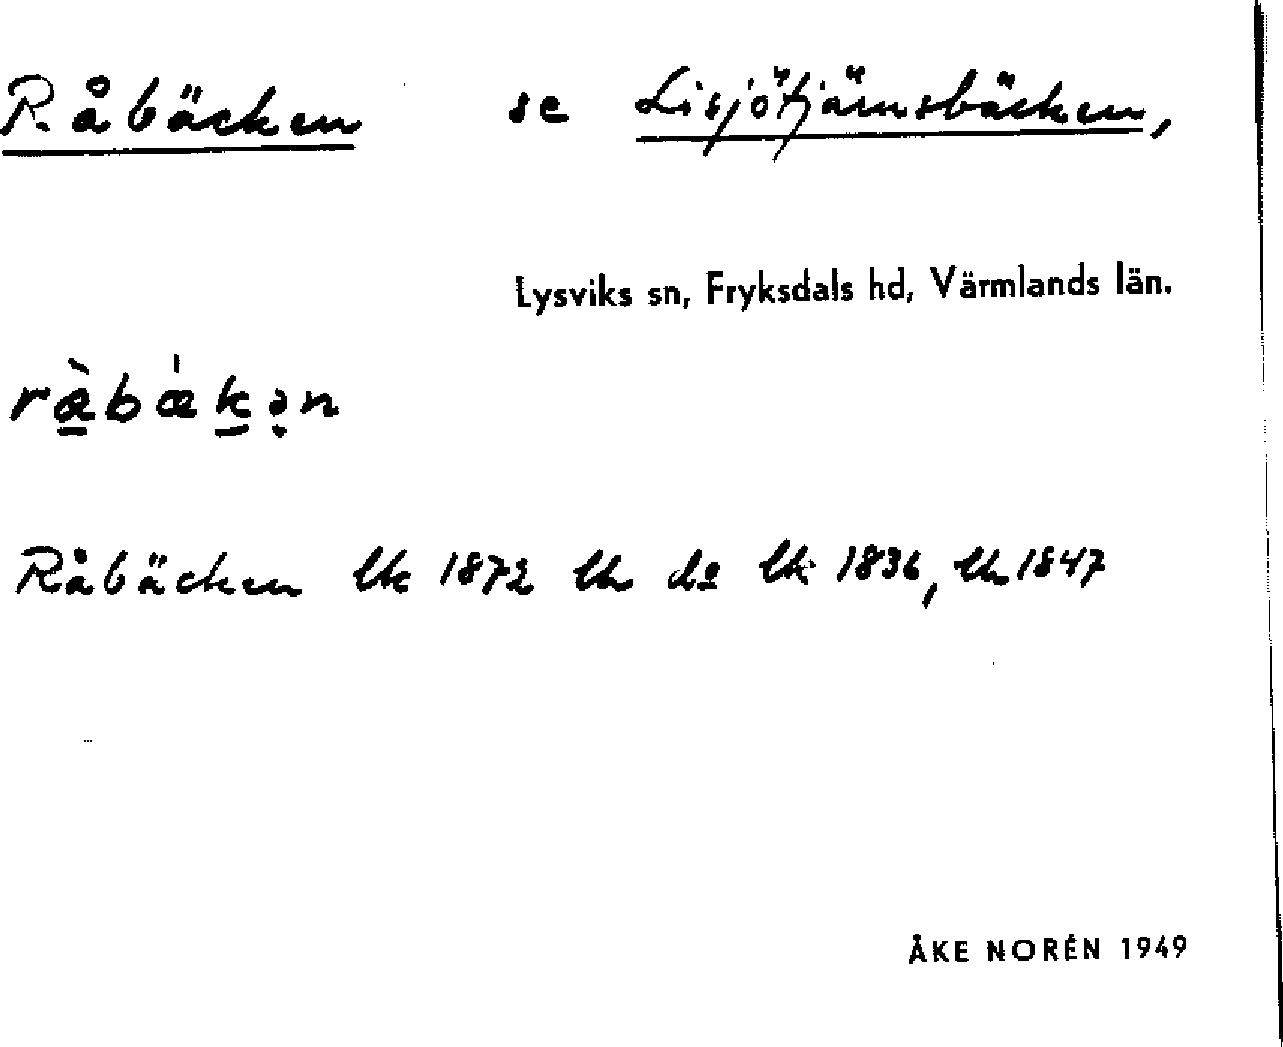 Råbäcken se Lisjötjärnsbäcken,
Lysviks sn, Fryksdals hd, Värmlands län.
Råbäcken lk 1872 lh do lk 1836, lh 1847
ÅKE NORÉN 1949